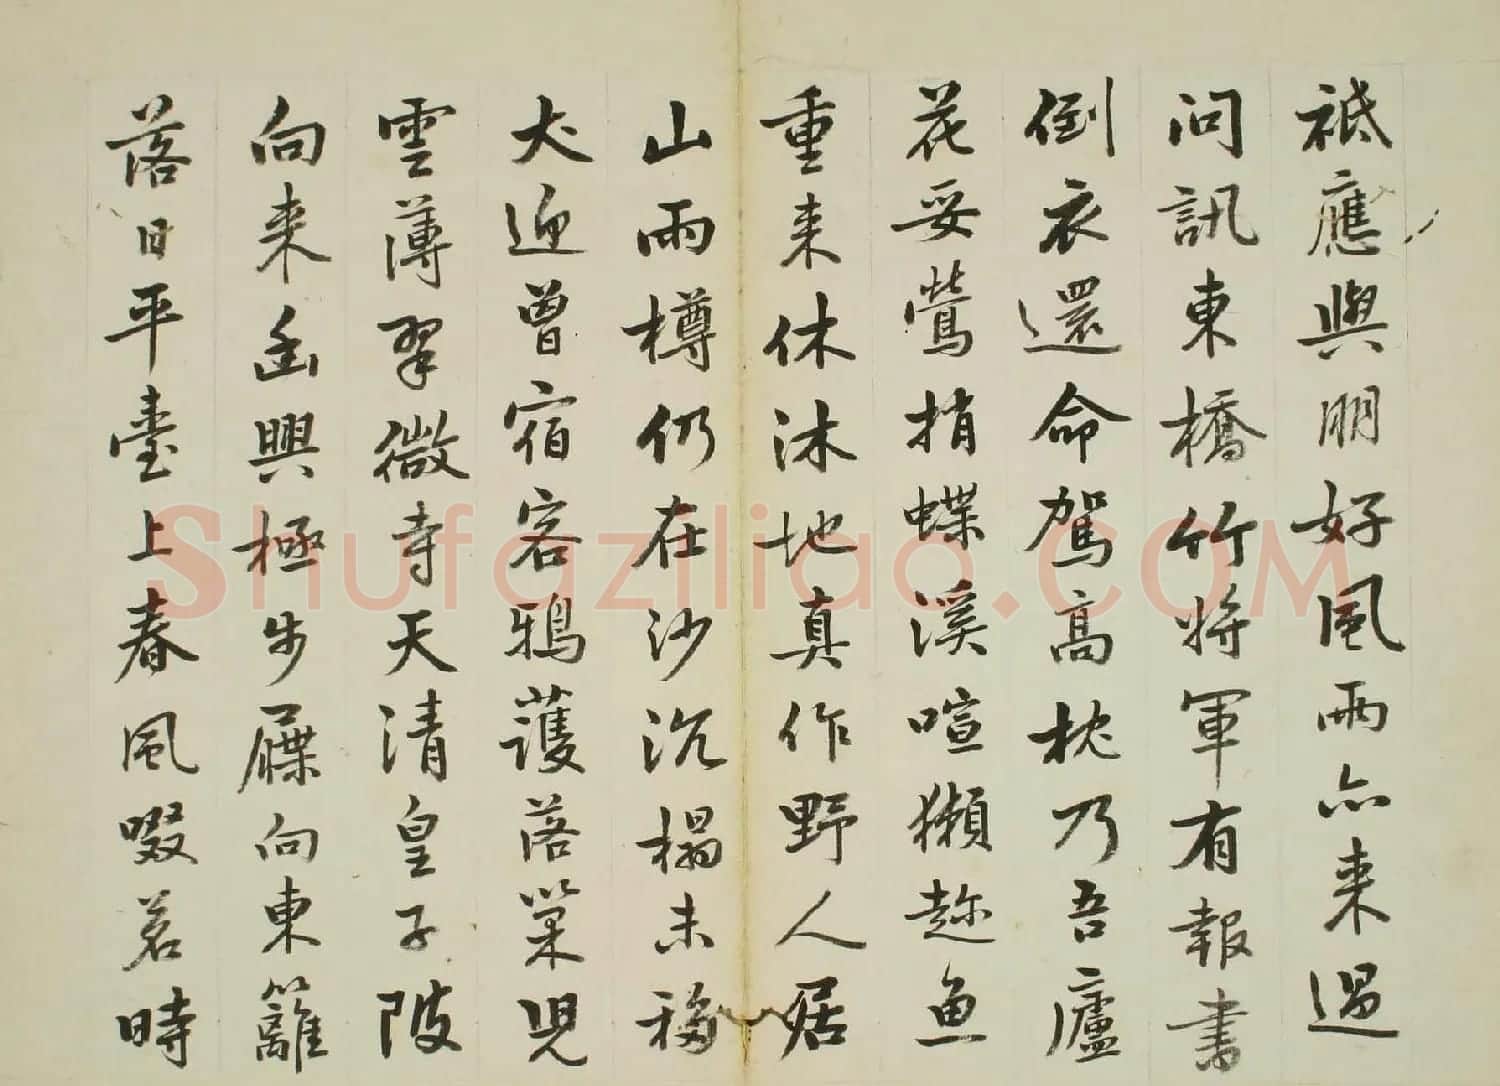 祗應與朋好風雨亦来過
問訊東橋竹將軍有報書
倒衣還命駕高枕乃吾廬
花妥鶯捎蝶溪喧獺趂魚
重来休沐地真作野人居
山雨樽仍在沙沉榻未移
犬迎曾宿客鴉護落巢児
雲薄翠微寺天清皇子陂
向来幽興極步屧向東籬
落日平臺上春風啜茗時
Shufaziliao.COM